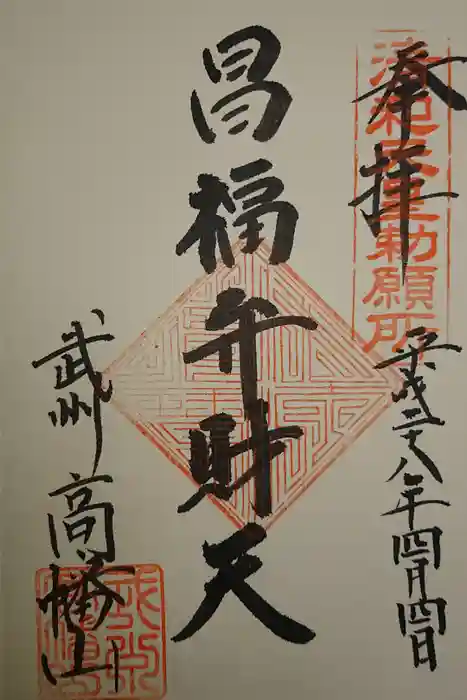 奉拝
清和天皇勅願所
平成二十八年四月四日
昌福弁財天
武州 高幡山